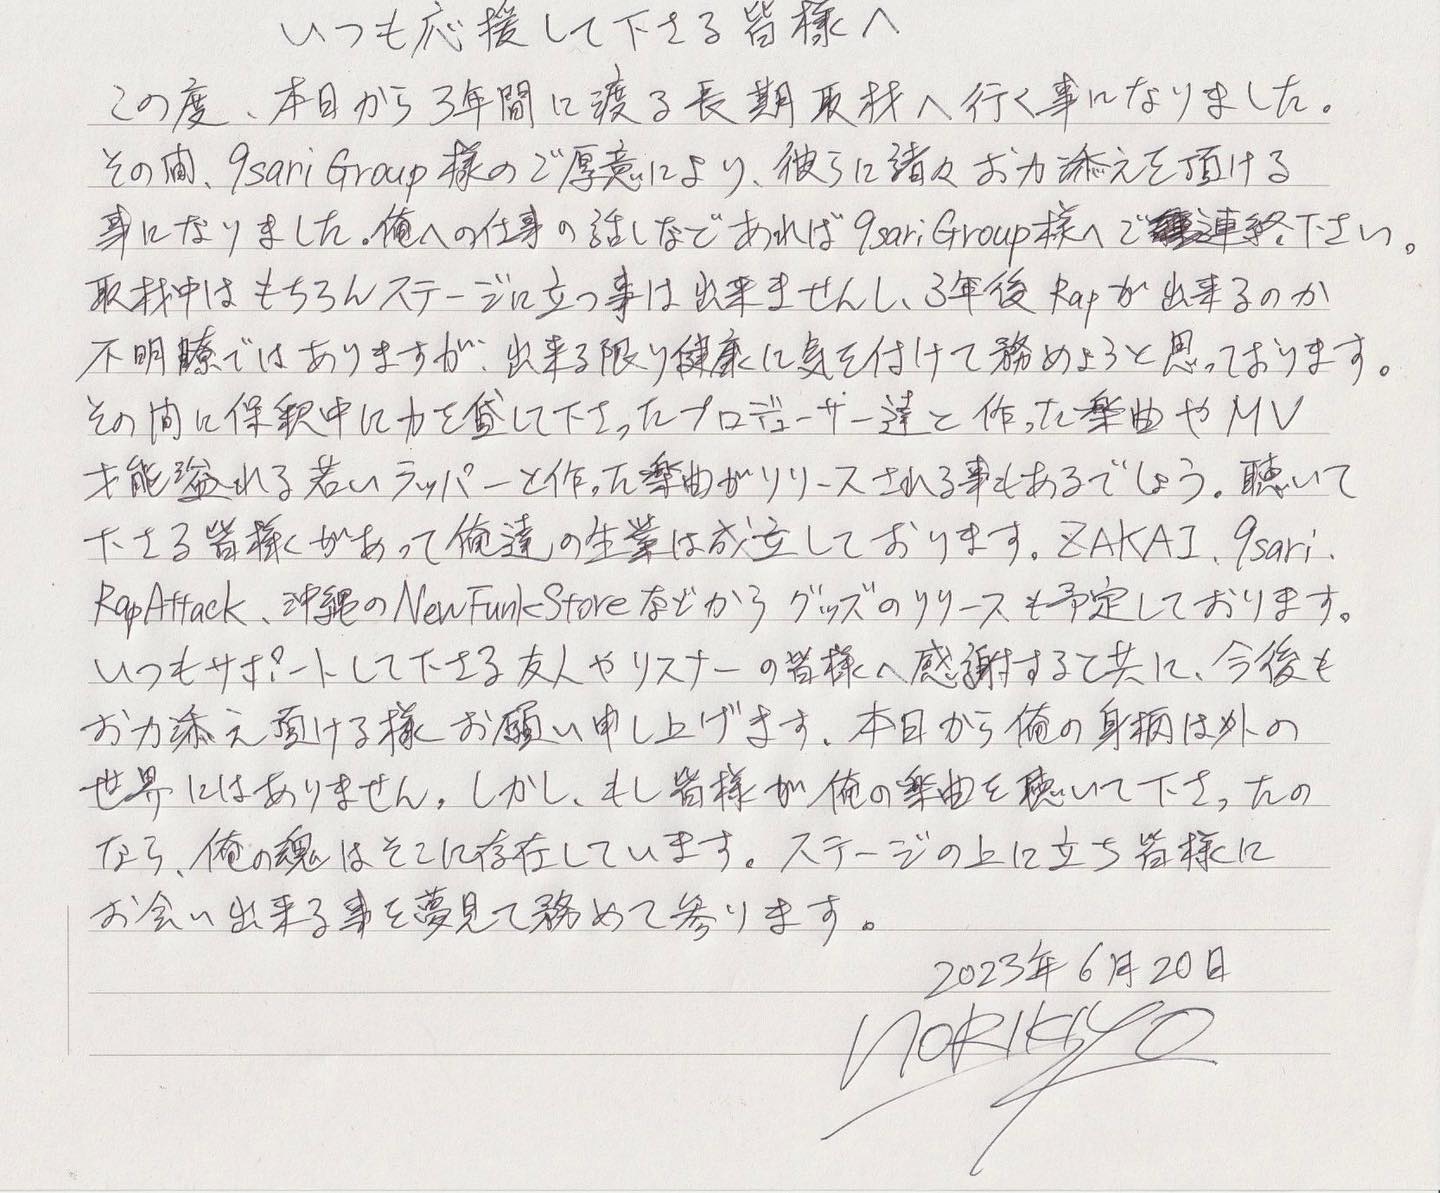 いつも応援して下さる皆様へ
この度、本日から3年間に渡る長期取材へ行く事になりました。
その間、9sari Group様のご厚意により、彼らに諸々お力添えを頂ける
事になりました。俺への仕事の話しなであれば9sari Group様へご連絡下さい。
取材中はもちろんステージに立つ事は出来ませんし、3年後Rapが出来るのか
不明瞭ではありますが、出来る限り健康に気を付けて務めようと思っております。
その間に保釈中に力を貸して下さったプロデューサー達と作った楽曲やMV
才能溢れる若いラッパーと作った楽曲がリリースされる事もあるでしょう。聴いて
下さる皆様があって俺達の生業は成立しております。ZAKAI、9sari、
RapAttack、沖縄のNewFunkStoreなどからグッズのリリースも予定しております。
いつもサポートして下さる友人やリスナーの皆様へ感謝すると共に、今後も
お力添え頂ける様お願い申し上げます。本日から俺の身柄は外の
世界にはありません。しかし、もし皆様が俺の楽曲を聴いて下さったの
なら、俺の魂はそこに存在しています。ステージの上に立ち皆様に
お会い出来る事を夢見て務めて参ります。
2023年6月20日
NORIKIYO